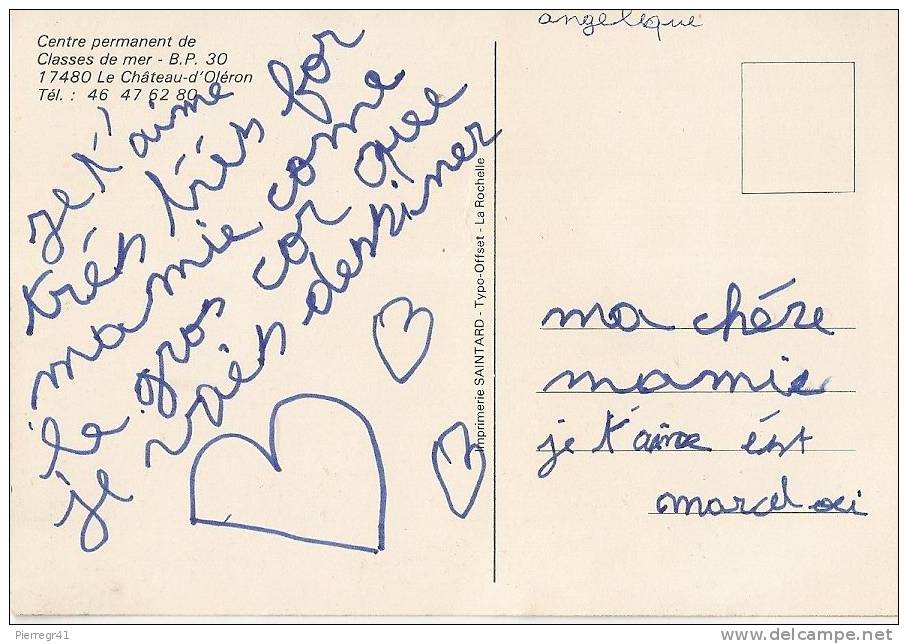 Centre permanent de
Classes de mer - B.P. 30
17480 Le Château-d'Oléron
Tél. : 46 47 62 80
je t'aime
trés trés for
mamie come
le gros cor quee
je vais dessiner
Imprimerie SAINTARD - Typo-Offset - La Rochelle
angelique
ma chére
mamie
je t'aime ést
marcel oci
Pierregr41
www.delcampe.net